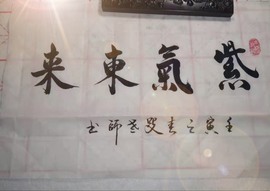 紫氣東来
壬寅之春師书